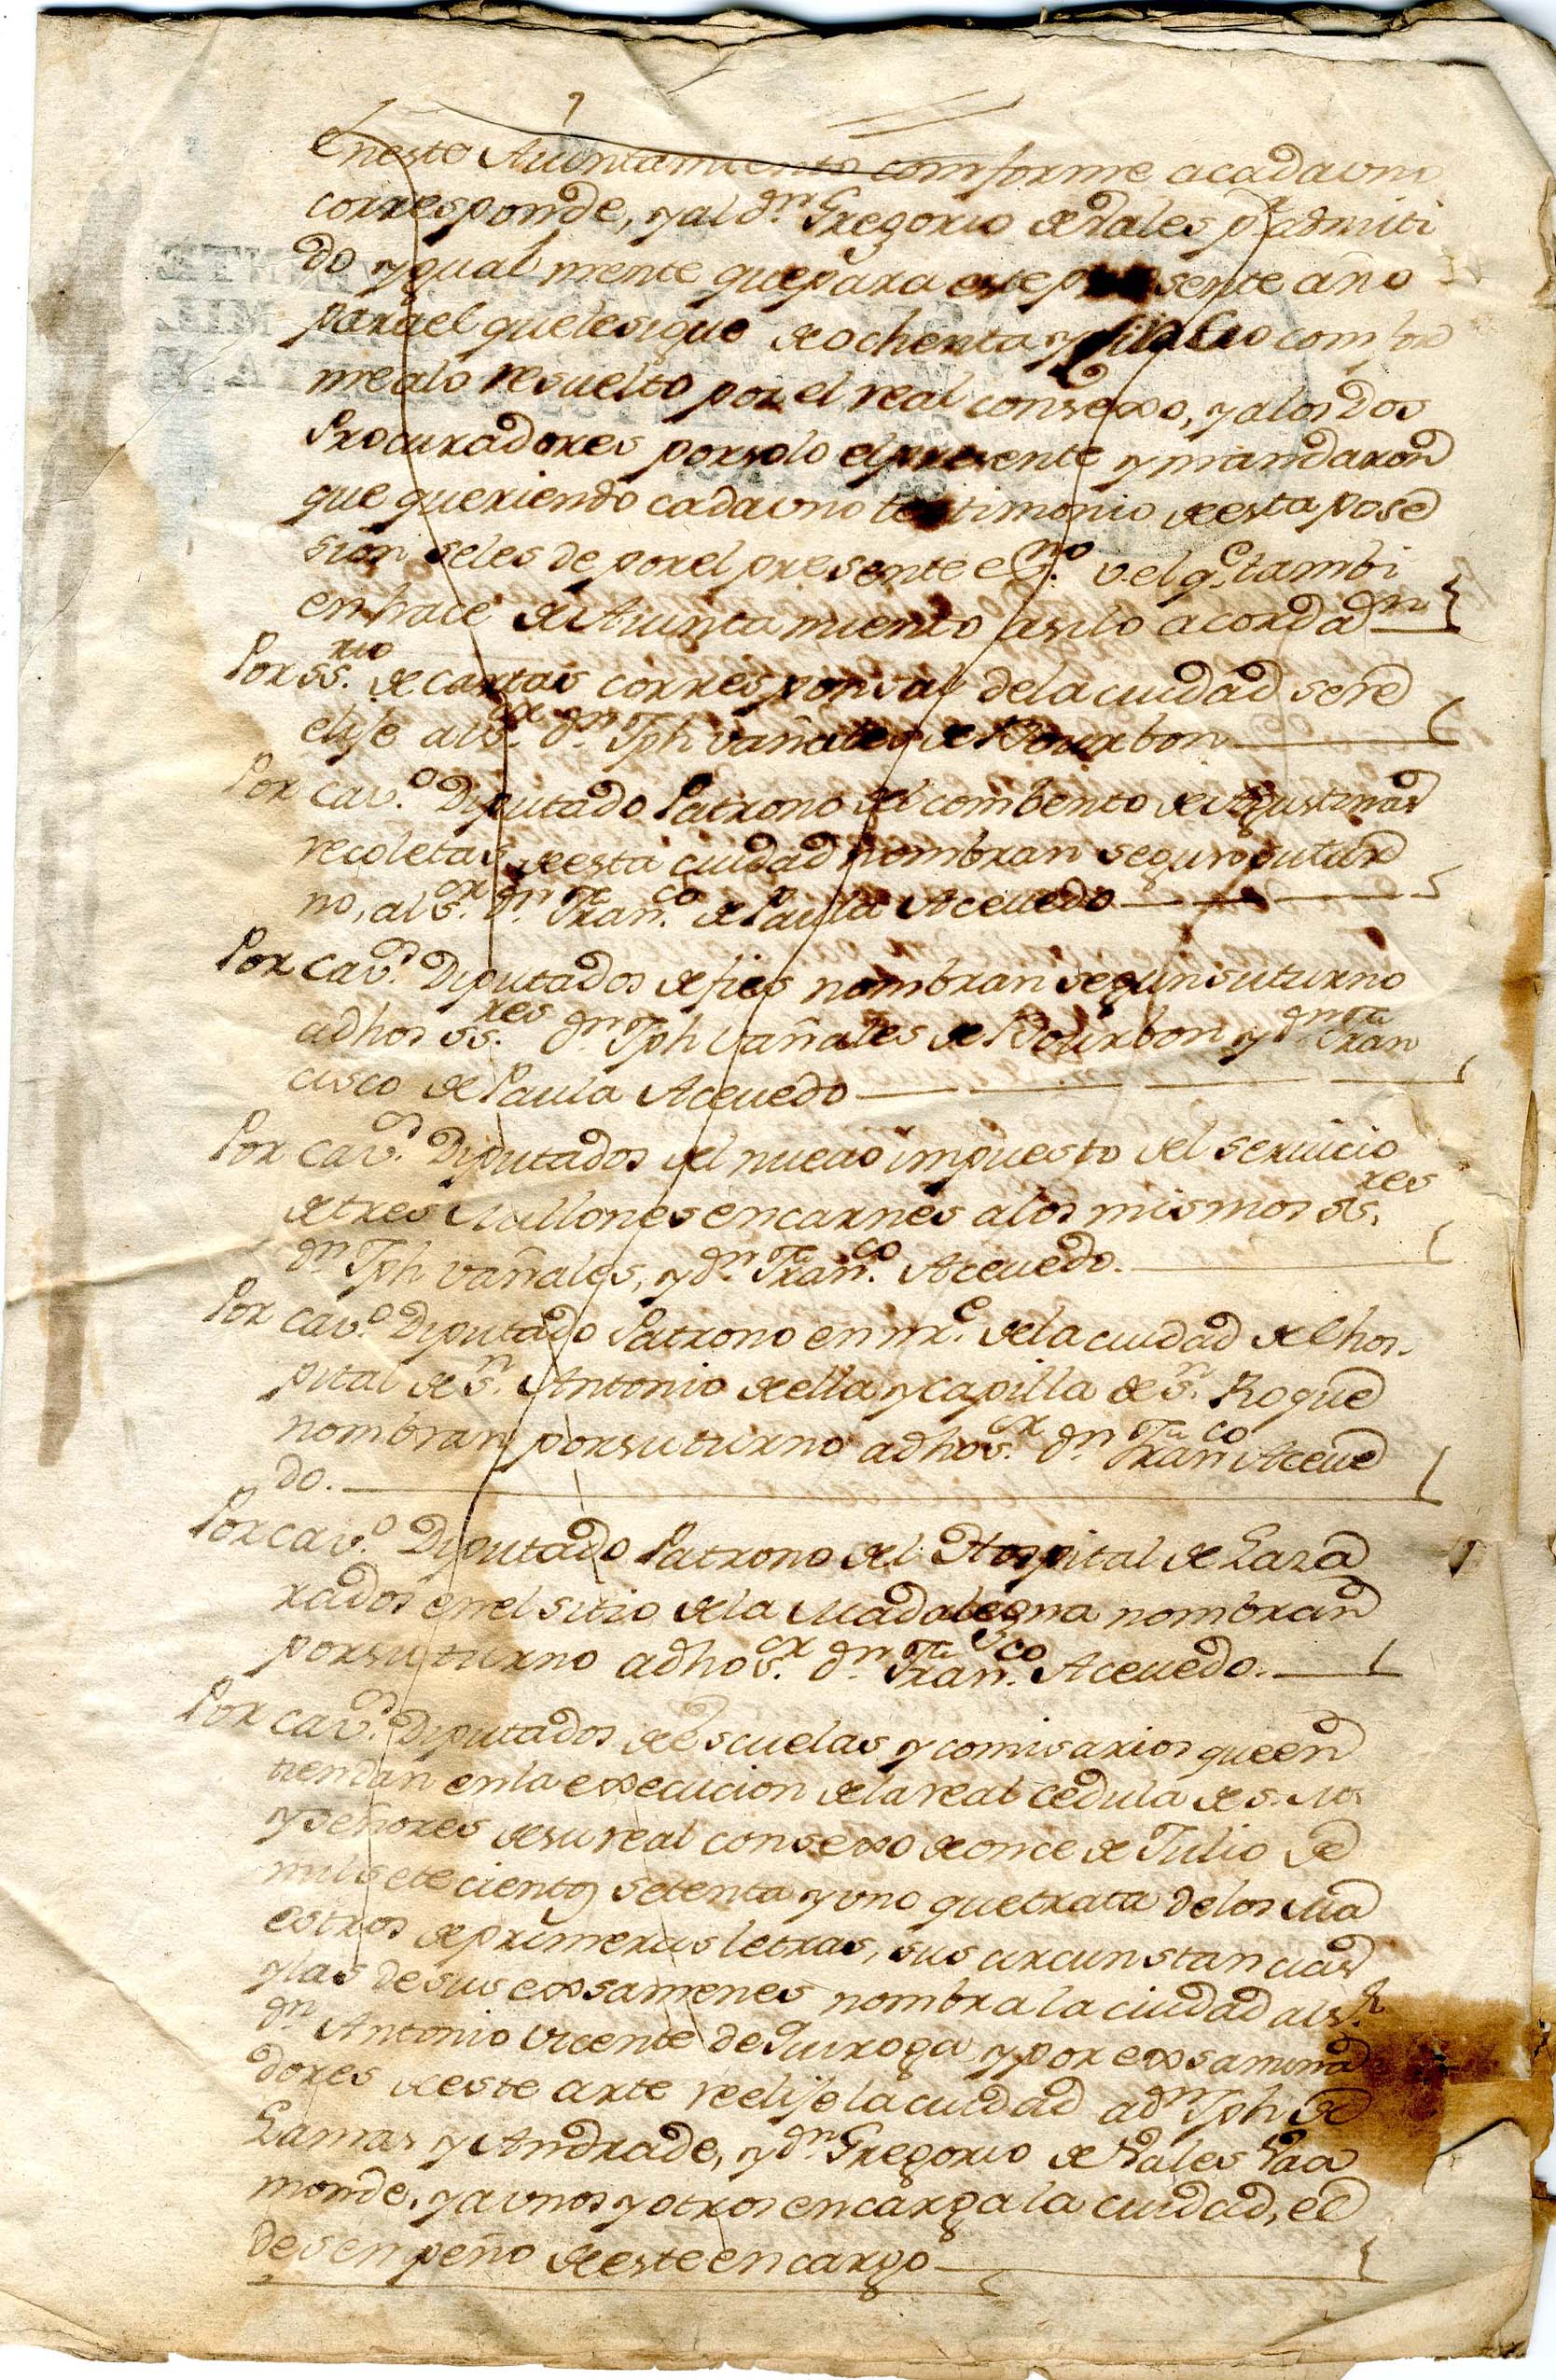 eneste Aiuntamiento comforme acadauno
corresponde, y al dn. Gregorio de Vales pr. admiti
do ygual mente que para este presente año
para el que le sigue de ochenta y cinco comfor
me alo resuelto por el real consexo, y alos dos
Procuradores por solo el presente y mandaron
que queriendo cada uno testimonio de esta pose
sion se les de por el presente essno. v. el qe. tambi
en hace de Aiunta miento asi lo acordan
Por ssrio. de cartas corresponsal de la ciudad se re
elije al sor. dn. Jph vañales de Bourbon
Por cavo. Diputado Patrono del combento de Agustinas
recoletas de esta ciudad nombran segun su tur
no, al sor. dn. Franco. de Paula Acevedo
Por cavs. Diputados de fies nombran segun su turno
a dhos ssres. dn. Jph vañales de Bourbon y dn. Fran
cisco de Paula Acevedo
Por cavs. Diputados del nuevo impuesto del servicio
de tres Millones en carnes a los mismos ssres.
dn. Jph vañales, y dn. Franco. Acevedo.
Por cavo. Diputado Patrono en nre. de la ciudad del hos-
pital de sn. Antonio de ella y capilla de sn. Roque
nombran por su turno a dho sor. dn. Franco Aceve
do.
Por cavo. Diputado Patrono del Hospital de Laza
rados en el sitio de la Madalegna nombran
por su turno a dho sor. dn. Franco. Acevedo.
Por cavs. Diputados de escuelas y comisarios que en
tiendan en la execucion de la real cedula de s. M.
y señores de su real consexo de once de Julio de
mil sete cientos setenta y uno que trata de los Ma
estros de primeras letras, sus circunstancias
y las de sus exsamenes nombra la ciudad al sr.
dn. Antonio Vicente de Quiroga y por exsamina
dores de este arte reelije la ciudad a dn. Jph de
Lamas y Andrade, y dn. Gregorio de Vales Vaa
monde, y a unos y otros encarga la ciudad, el
desempeño de este encargo